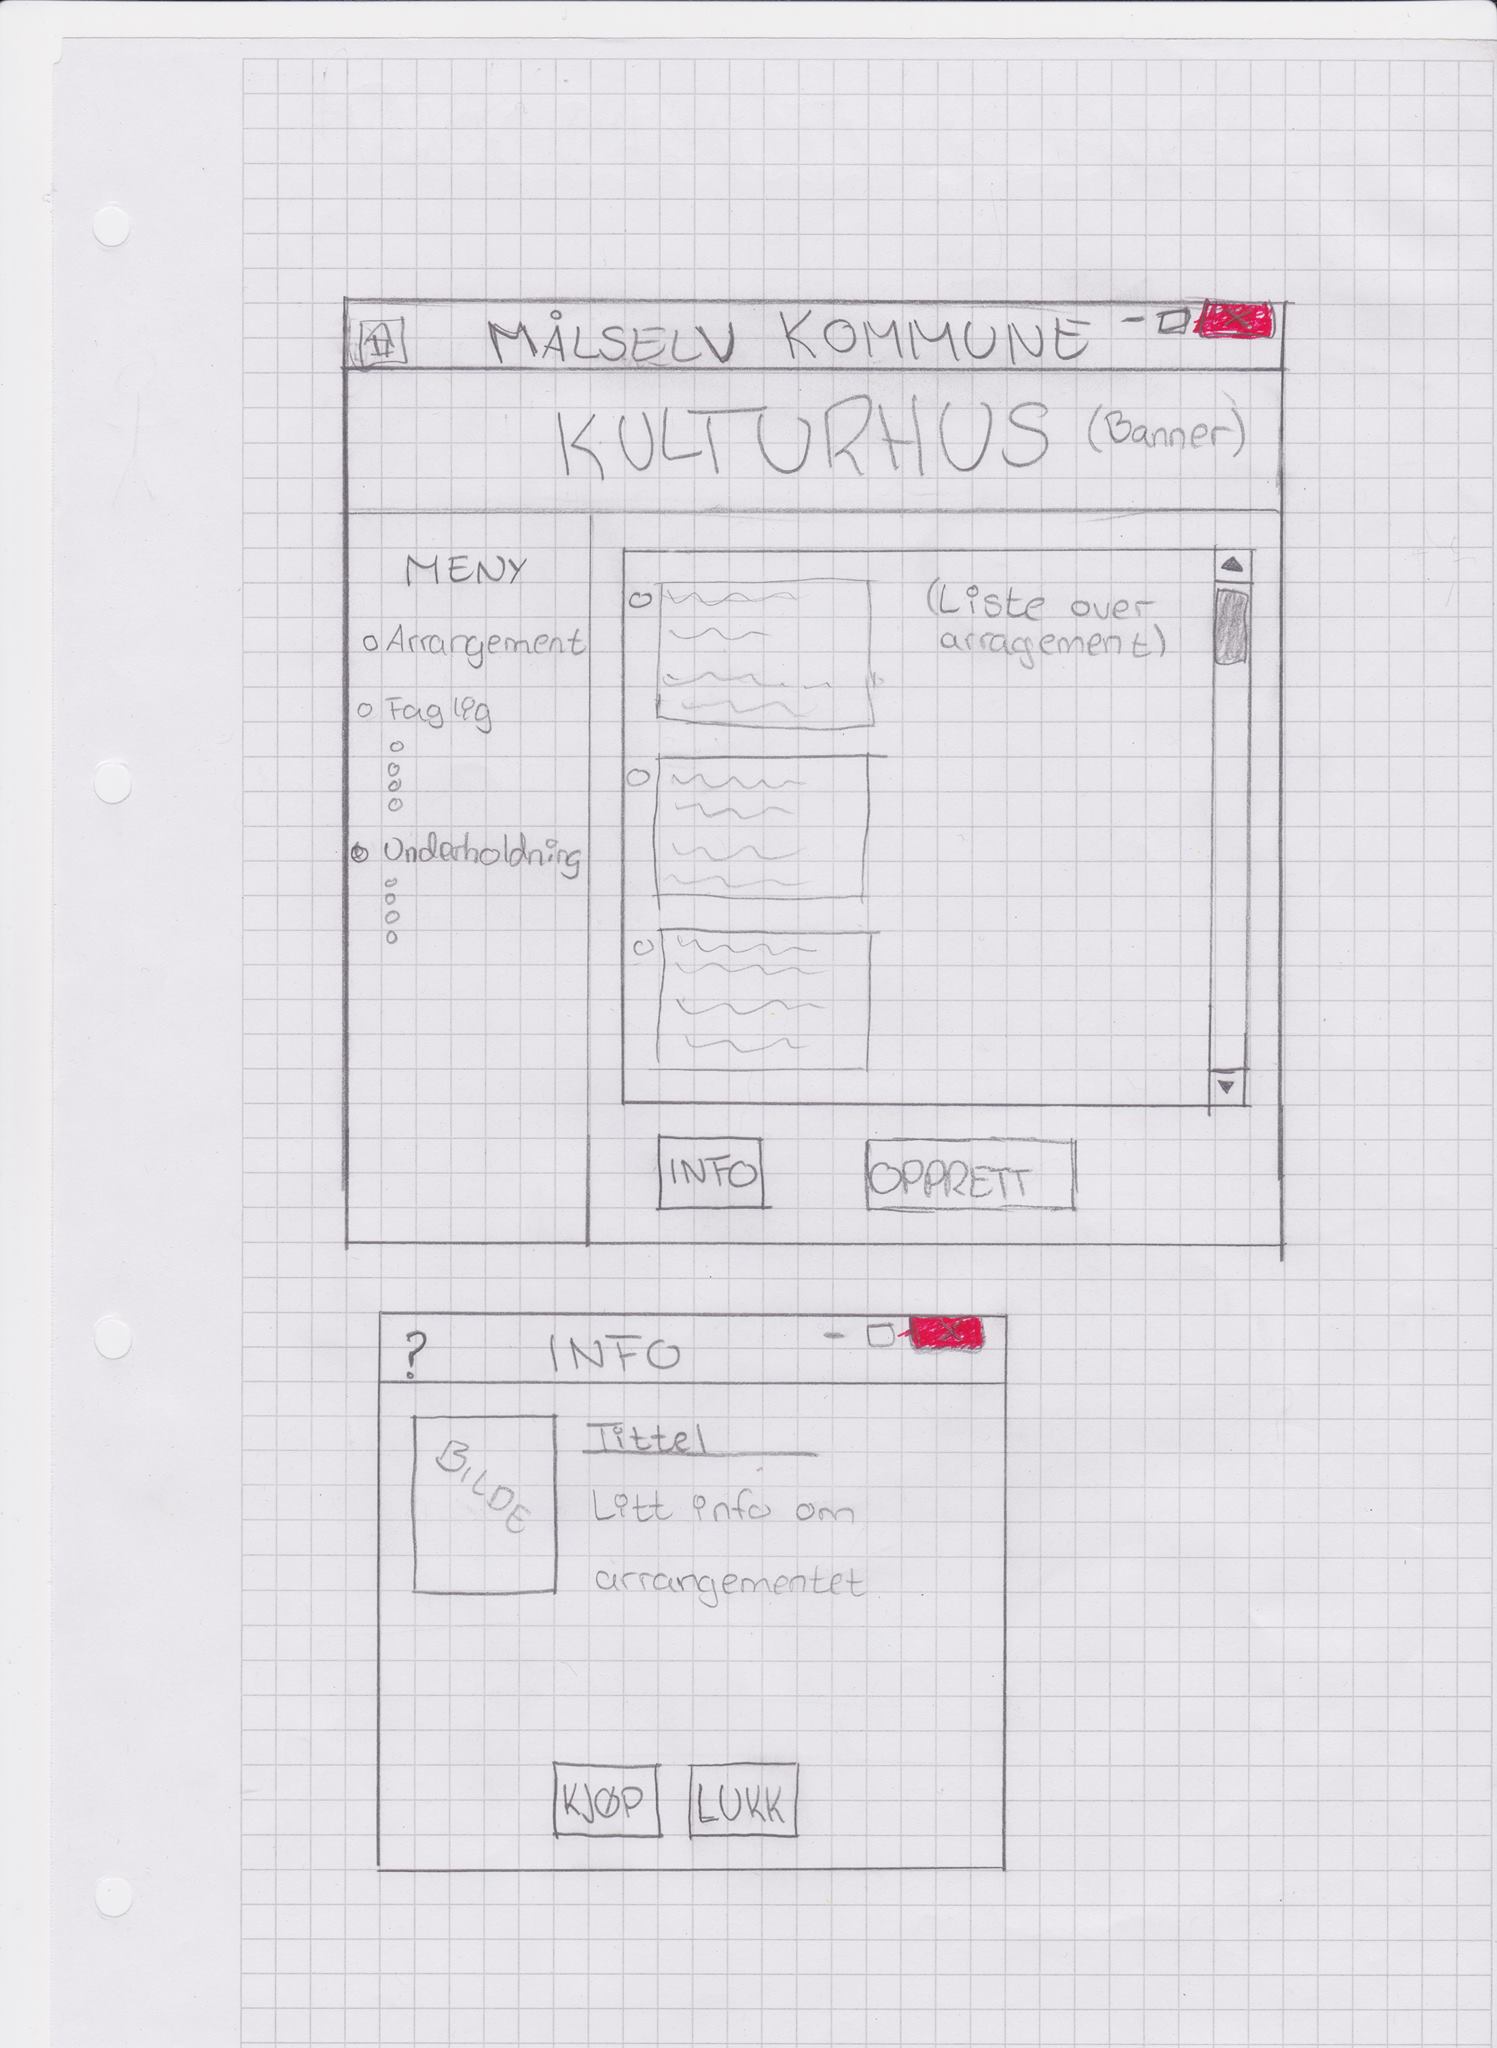 MÅLSELV KOMMUNE - X
KULTURHUS (Banner)
MENY
Arrangement
Faglig
Underholdning
(Liste over
arragement)
INFO
OPPRETT
? INFO - X
BILDE
Tittel
Litt info om
arrangementet
KJØP
LUKK